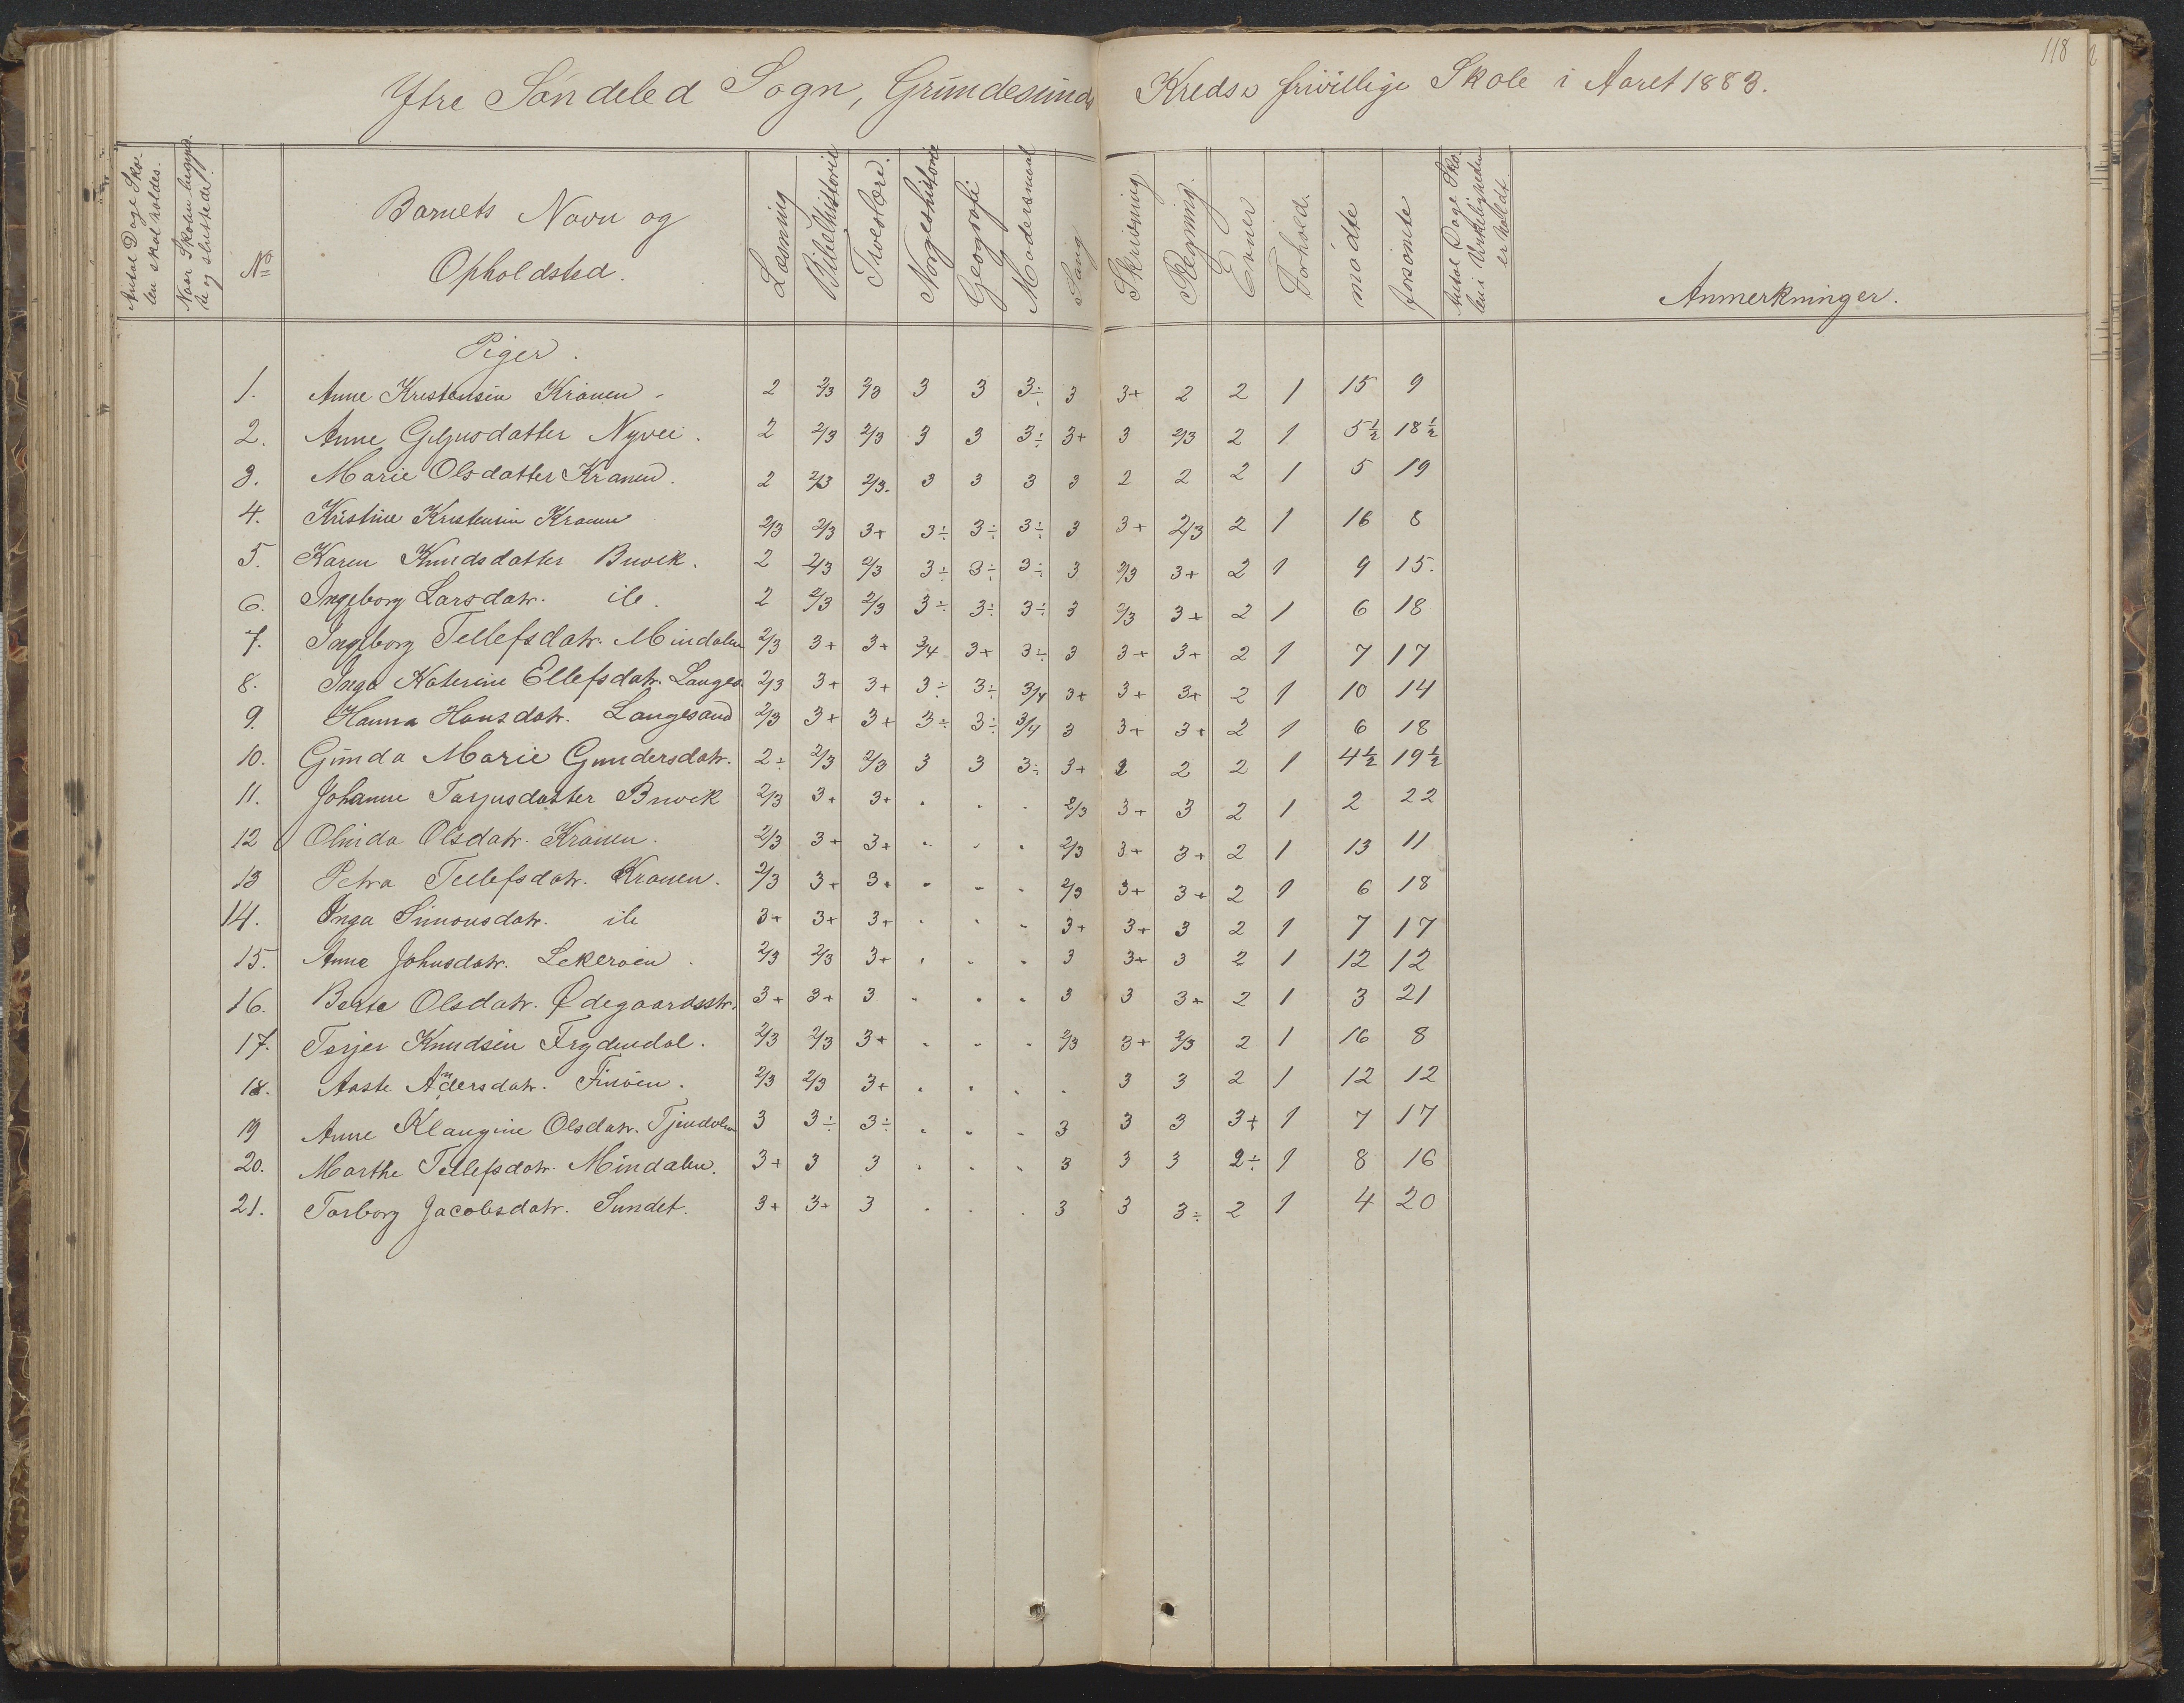 118
Ytre Söndeled Sogn, Grundesunds Kredses frivillige Skole i Aaret 1883.
Antal Dage Skolen skal holdes.
Naar Skolen begyndte og sluttede.
No
Barnets Navn og Opholdsted.
Læsning
Bibelhistorie
Troeslære.
Norgeshistorie
Geografi
Modersmaal
Sang
Skrivning
Regning.
Evner
Forhold.
mödte
forsömte
Antal Dage Skolen i Virkeligheden er holdt.
Anmerkninger.
Piger.
1. Anne Kristensen Kranen 2 2/3 2/3 3 3 3÷ 3 3+ 2 2 1 15 9
2. Anne Gjeruldsdatter Nyvei. 2 2/3 2/3 3 3 3÷ 3+ 3 2/3 2 1 5½ 18½
3. Marie Olsdatter Kranen. 2 2/3 2/3. 3 3 3 3 2 2 2 1 5 19
4. Kristine Kristensen Kranen 2/3 2/3 3+ 3÷ 3÷ 3÷ 3 3+ 2/3 2 1 16 8
5. Karen Knudsdatter Buvik. 2 2/3 2/3 3÷ 3÷ 3÷ 3 2/3 3+ 2 1 9 15.
6. Ingeborg Larsdatr. ib. 2 2/3 2/3 3÷ 3÷ 3÷ 3 2/3 3+ 2 1 6 18
7. Ingeborg Tellefsdatr. Mindalen 2/3 3+ 3+ 3/4 3+ 3÷ 3 3+ 3+ 2 1 7 17
8. Inga Katerine Ellefsdatr. Langes. 2/3 3+ 3+ 3÷ 3÷ 3/4 3+ 3+ 3+ 2 1 10 14
9. Hanna Hansdatr. Langesand 2/3 3+ 3+ 3÷ 3÷ 3/4 3 3+ 3+ 2 1 6 18
10. Gunda Marie Gundersdatr. 2÷ 2/3 2/3 3 3 3÷ 3+ 2 2 2 1 4½ 19½
11. Johanne Tarjusdatter Buvik 2/3 3+ 3+ . . . 2/3 3+ 3 2 1 2 22
12 Olinda Olsdatr. Kranen. 2/3 3+ 3+ . . . 2/3 3+ 3+ 2 1 13 11
13 Petra Tellefsdatr. Kranen. 2/3 3+ 3+ . . . 2/3 3+ 3+ 2 1 6 18
14. Inga Simonsdatr. ib 3+ 3+ 3+ . . . 3+ 3+ 3 2 1 7 17
15. Anne Johnsdatr. Lekeröen. 2/3 2/3 3+ . . . 3 3+ 3 2 1 12 12
16. Berte Olsdatr. Ødegaardsstr. 3+ 3+ 3 . . . 3 3 3+ 2 1 3 21
17. Terjer Knudsen Frydendal. 2/3 2/3 3+ . . . 2/3 3+ 2/3 2 1 16 8
18. Aaste Andersdatr. Finöen. 2/3 2/3 3+ . . . . 3 3 2 1 12 12
19 Anne Klangine Olsdatr. Tjendalen 3 3÷ 3÷ . . . 3 3 3 3+ 1 7 17
20. Marthe Tellefsdatr. Mindalen. 3+ 3 3 . . . 3 3 3 2÷ 1 8 16
21. Torborg Jacobsdatr. Sundet. 3+ 3+ 3 . . . 3 3 3÷ 2 1 4 20